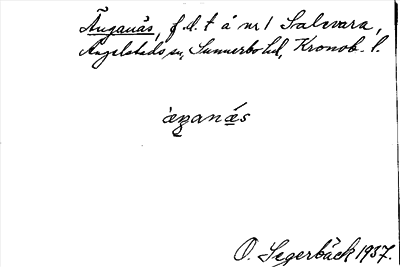 Änganäs, f. d. t å nr 1 Salvvara,
Angelstads sn, Sunnerbo hd, Kronob. l.
àŋanäs
O. Segerbäck 1937.